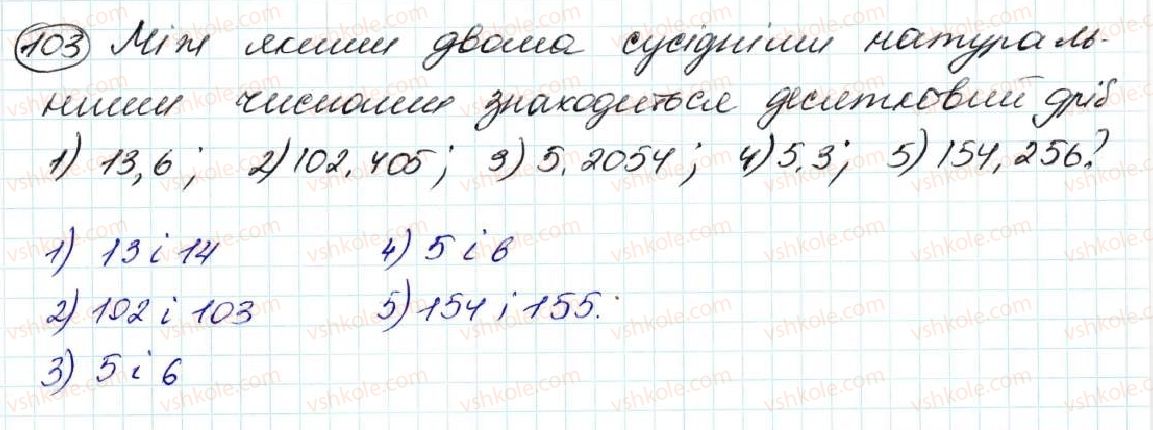 103 Між якими двома сусідніми натураль-
ними числами знаходиться десятковий дріб
1) 13,6; 2) 102,405; 3) 5,2054; 4) 5,3; 5) 154,256?
1) 13 і 14 4) 5 і 6
2) 102 і 103 5) 154 і 155.
3) 5 і 6